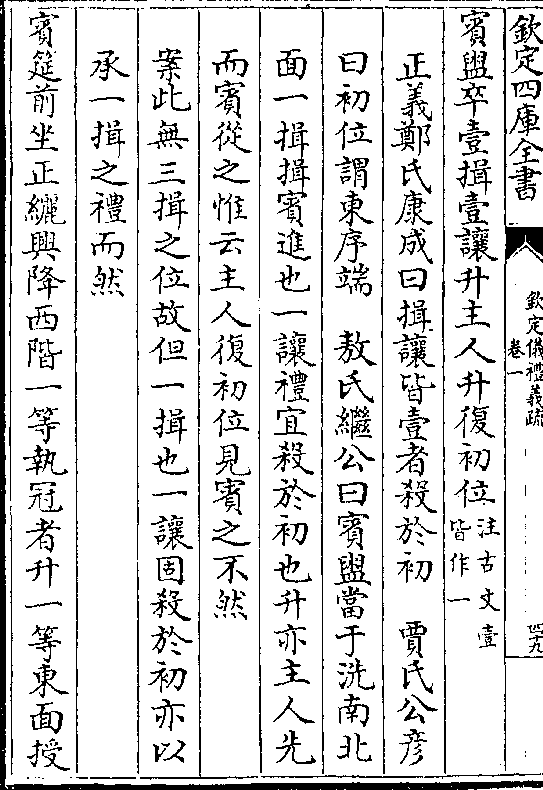 欽定四庫全書
欽定儀禮義疏
卷一
四十九
賓盥卒壹揖壹讓升主人升復初位注古文壹
皆作一
正義鄭氏康成曰揖讓皆壹者殺於初　賈氏公彦
曰初位謂東序端　敖氏繼公曰賓盥當于洗南北
面一揖揖賓進也一讓禮宜殺於初也升亦主人先
而賓從之惟云主人復初位見賓之不然
案此無三揖之位故但一揖也一讓固殺於初亦以
承一揖之禮而然
賓筵前坐正纚興降西階一等執冠者升一等東面授